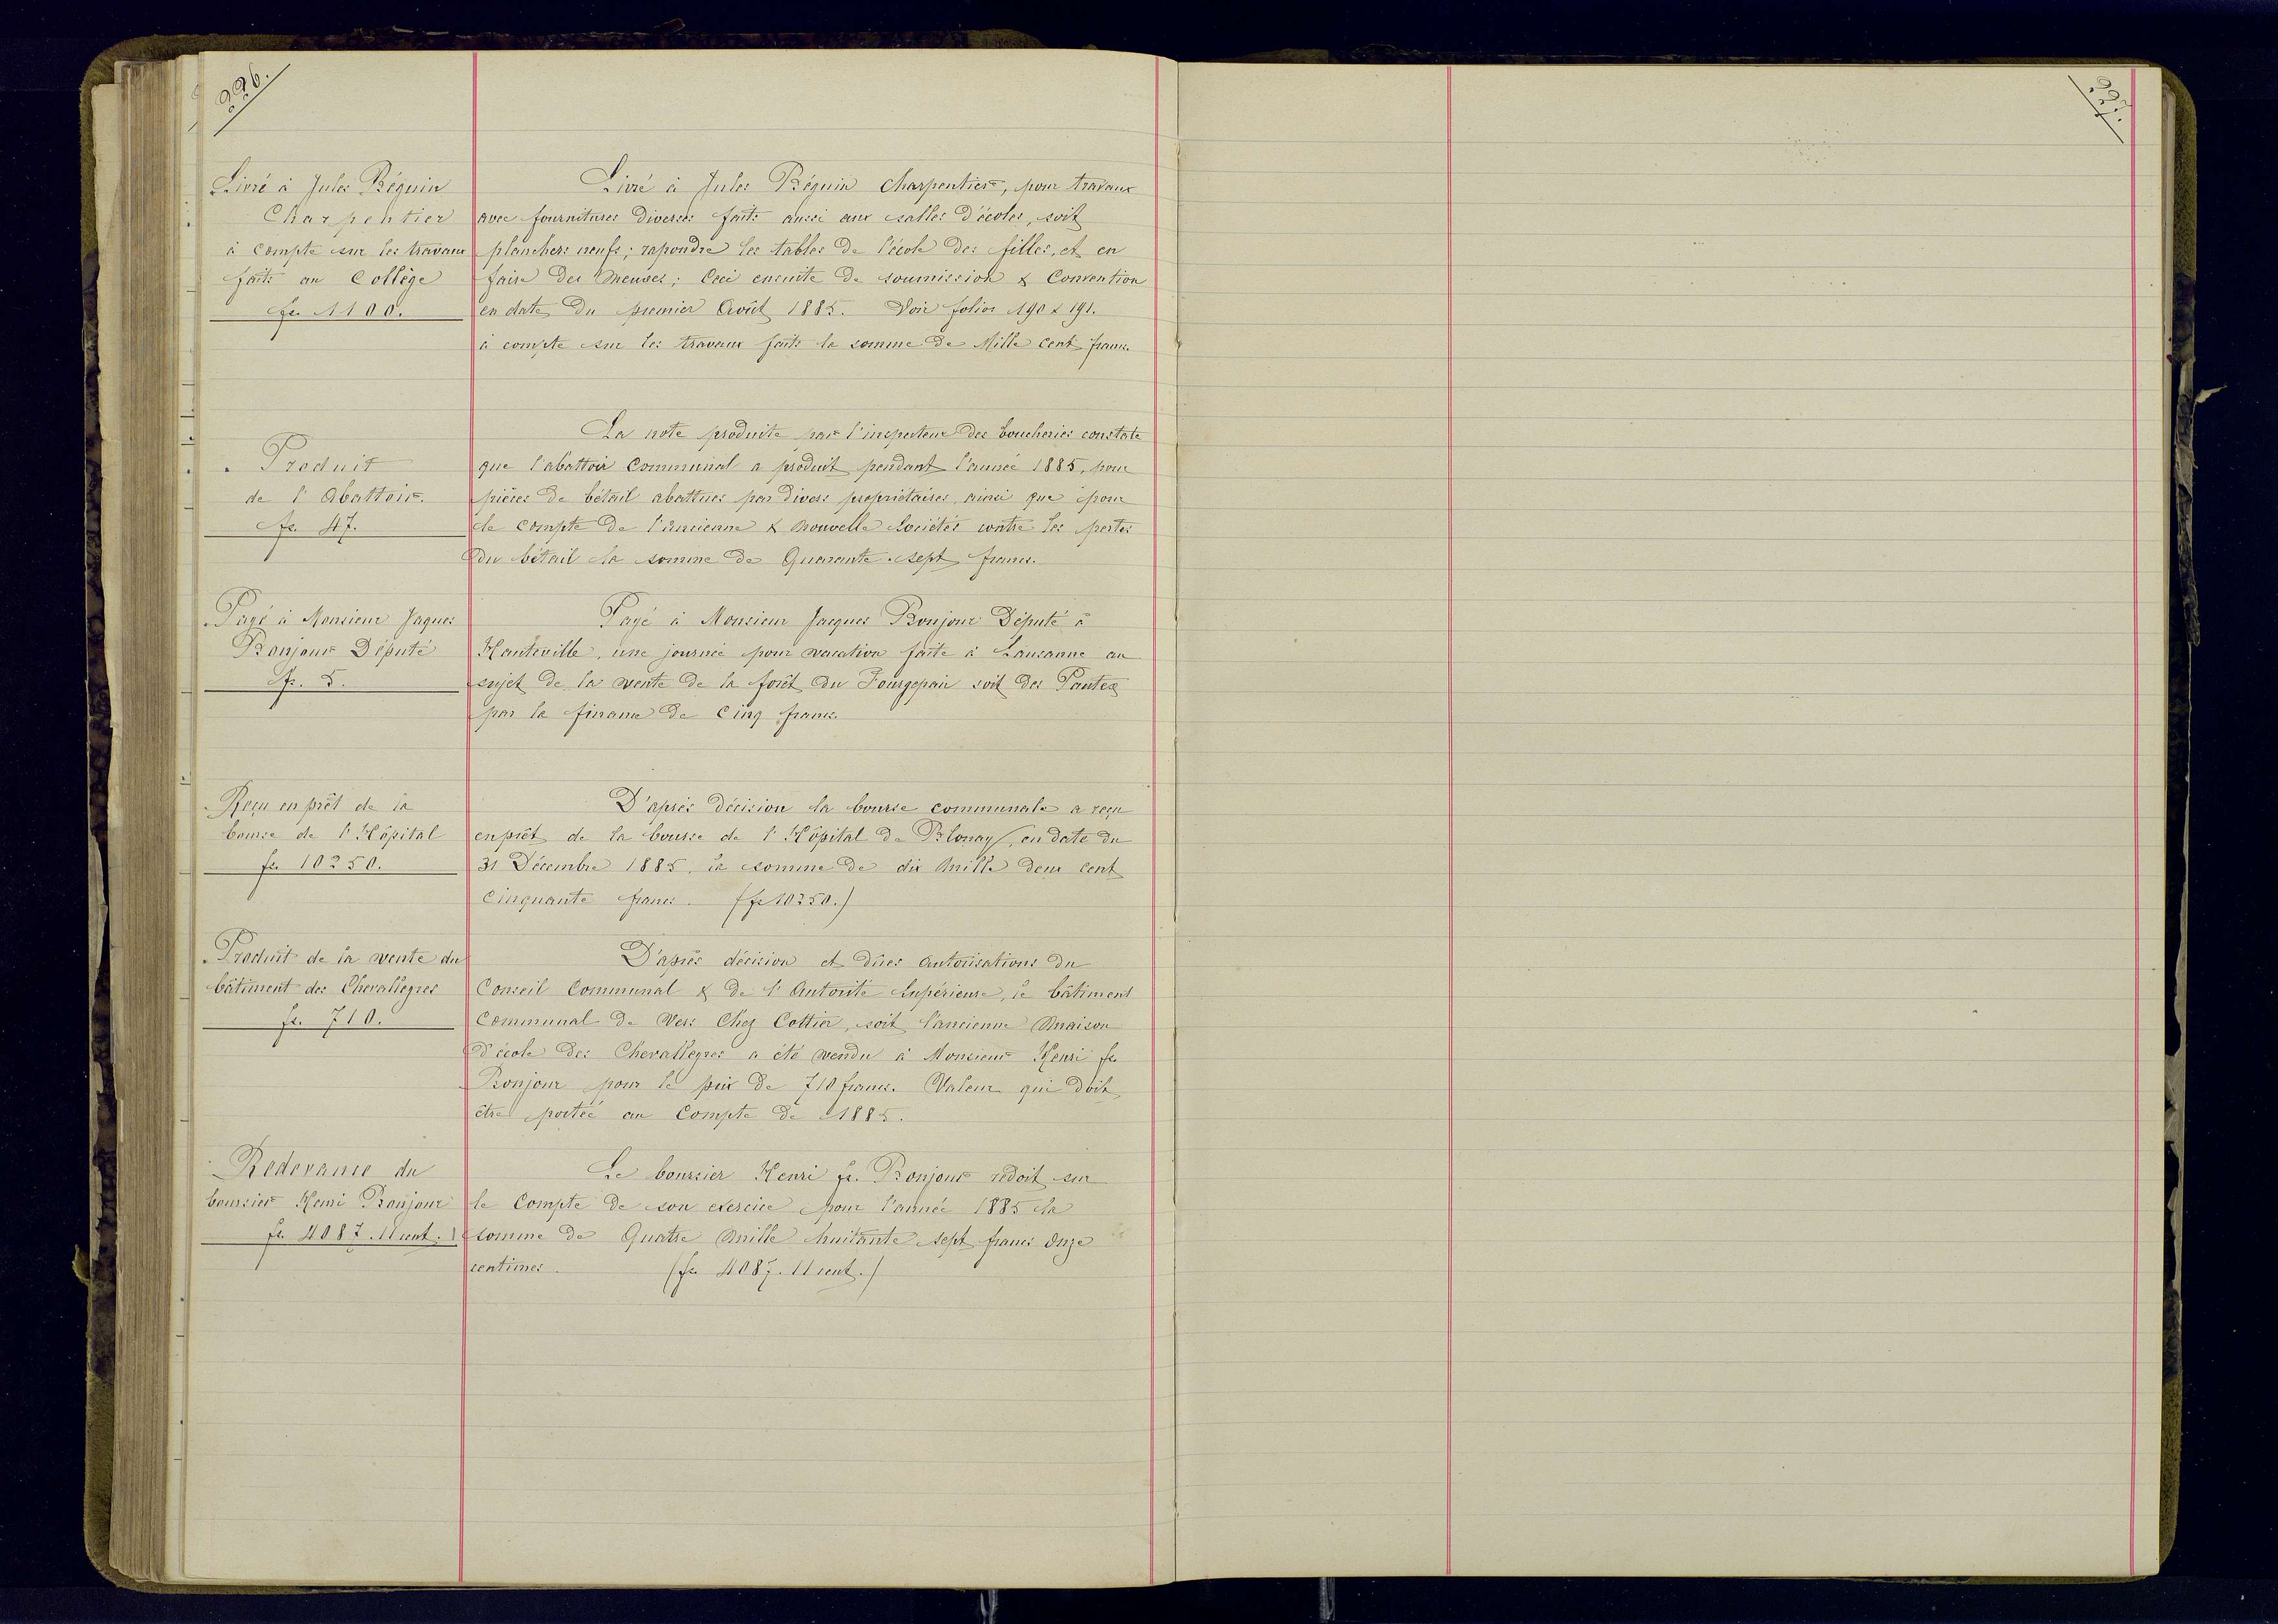 226.
Livré à Jules Béguin
Charpentier
à compte sur les travaux
faits au Collège
fr. 1100.
Livré à Jules Béguin Charpentier, pour travaux
avec fournitures diverses faits aussi aux salles d'écoles, soit
planchers neufs; rapondre les tables de l'école des filles, et en
faire des neuves; Ceci ensuite de soumission & Convention
en date du premier Août 1885. Voir folios 190 & 191.
à compte sur les travaux faits la somme de Mille cent francs.
Produit
de l'Abattoir.
fr. 47.
La note produite par l'inspecteur des boucheries constate
que l'abattoir Communal a produit pendant l'année 1885, pour
pièces de bétail abattues par divers propriétaires, ainsi que pour
le compte de l'ancienne & nouvelle Sociétés contre les pertes
du bétail la somme de Quarante-sept francs.
Payé à Monsieur Jaques
Bonjour Député
fr. 5.
Payé à Monsieur Jacques Bonjour Député à
Hauteville, une journée pour vacation faite à Lausanne au
sujet de la vente de la forêt du soit des
par la finance de Cinq francs.
Reçu en prêt de la
bourse de l'Hôpital
fr. 10250.
D'après décision la bourse communale a reçu
en prêt de la bourse de l'Hôpital de Blonay, en date du
31 Décembre 1885, la somme de dix Mille deux cent
Cinquante francs. (fr 10250.)
Produit de la vente du
bâtiment des Chevallegres
fr. 710.
D'après décision et dûes autorisations du
Conseil Communal & de l'Autorité Supérieure, le bâtiment
Communal de Vers Chez Cottier, soit l'ancienne Maison
d'école des Chevallegres a été vendu à Monsieur Henri fs.
Bonjour pour le prix de 710 francs. Valeur qui doit
être portée au Compte de 1885.
Redevance du
boursier Henri Bonjour
fr. 4087.11 cent.
Le boursier Henri fs. Bonjour redoit sur
le Compte de son exercice pour l'année 1885 la
somme de Quatre Mille huitante sept francs Onze
centimes. (fr. 4087.11 cent.)
227.